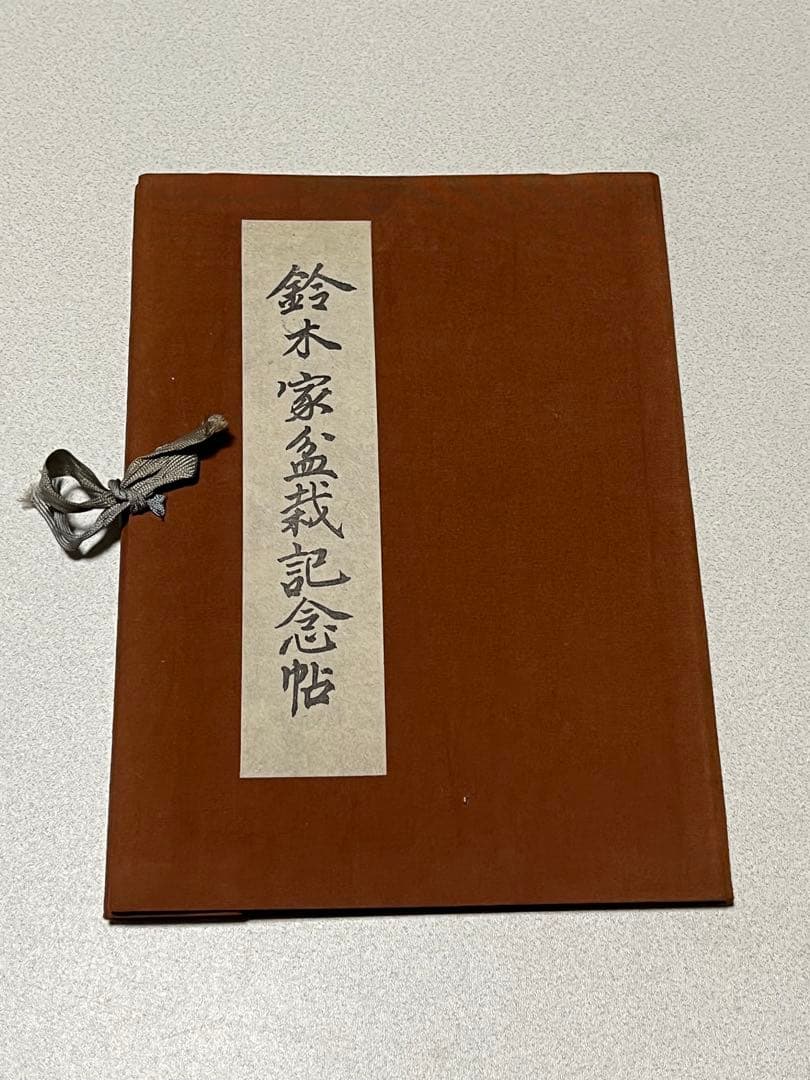 鈴木家盆栽記念帖